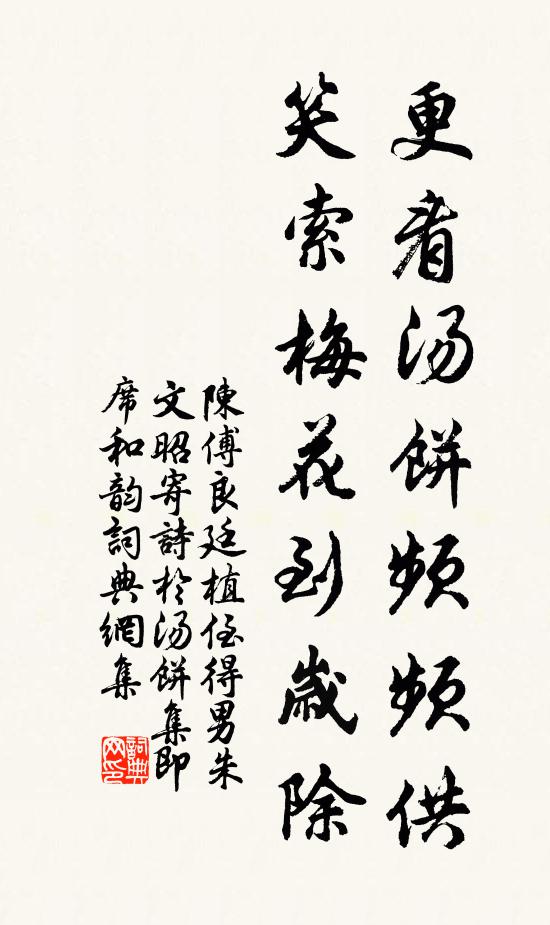 更看湯餅頻頻供
笑索梅花到歲除
陳傅良廷植侄得男朱
文昭寄詩於湯餅集即
席和韵詞典網集
詞典网印